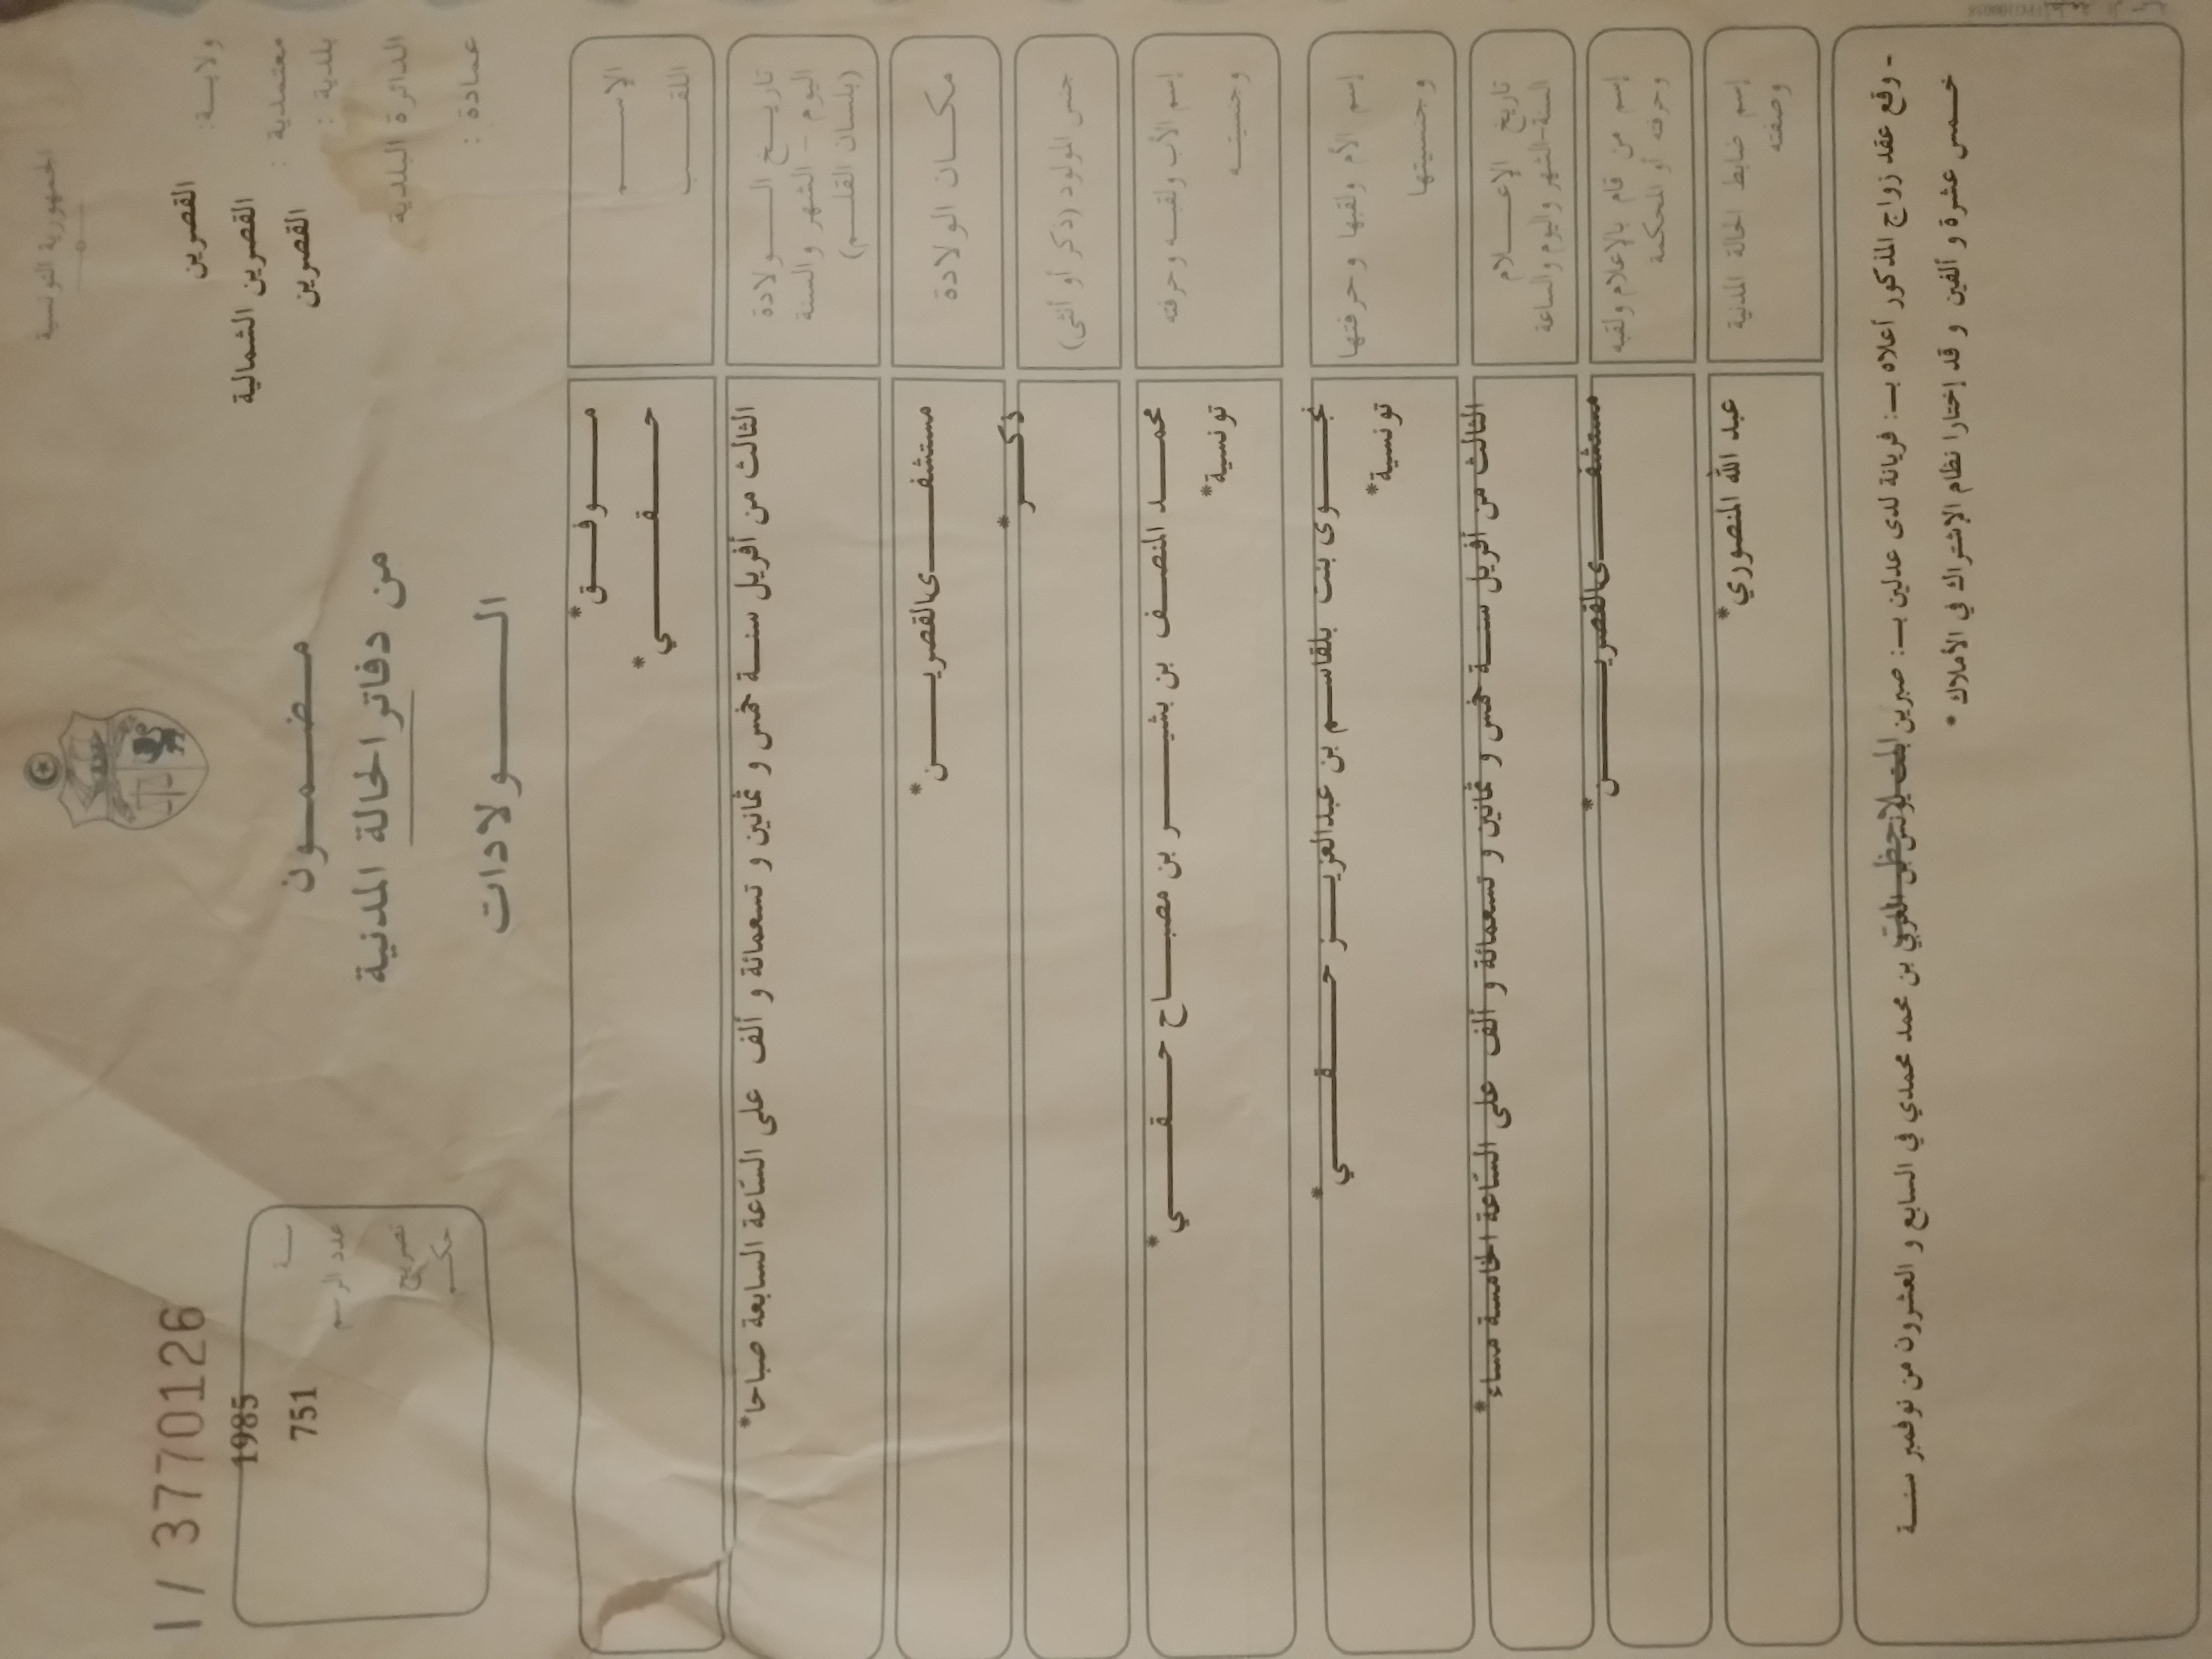 الجمهورية التونسية
ولايـة: القصرين
معتمدية : القصرين الشمالية
بلدية : القصرين
الدائرة البلدية
عمادة :
مـضـمـون
من دفاتر الحالة المدنية
الـولادات
I / 3770126
سنة 1985
عدد الرسم 751
تصريح
حكم
الإسـم موفـق*
اللقـب حـقـي*
تاريـخ الـولادة
اليوم - الشهر والسنة
(بلسان القلـم)
الثالث من أفريل سنة خمس و ثمانين و تسعمائة و ألف على الساعة السابعة صباحا*
مكـان الولادة مستشفـى القصريـن*
جنس المولود (ذكر أو أنثى) ذكـر*
إسم الأب ولقبـه وحرفته محمـد المنصـف بن بشيـر بن مصبـاح حـقـي*
وجنسيتـه تونسية*
إسم الأم ولقبها وحرفتها نجـوى بنت بلقاسـم بن عبدالعزيـز حـقـي*
وجنسيتها تونسية*
تاريخ الإعـلام
السنة-الشهر واليوم والساعة
الثالث من أفريل سنـة خمس و ثمانين و تسعمائة و ألف على الساعة الخامسة مساء*
إسم من قام بالإعلام ولقبه
وحرفته أو المحكمة
مستشفـى القصريـن*
إسم ضابط الحالة المدنية
وصفته
عبد الله المنصوري*
- وقع عقد زواج المذكور أعلاه بـ: فريانة لدى عدلين بـ: صبرين بن محمد محمدي في السابع و العشرون من نوفمبر سنـة
خـمس عشرة و ألفين و قد إختارا نظام الإشتراك في الأملاك *